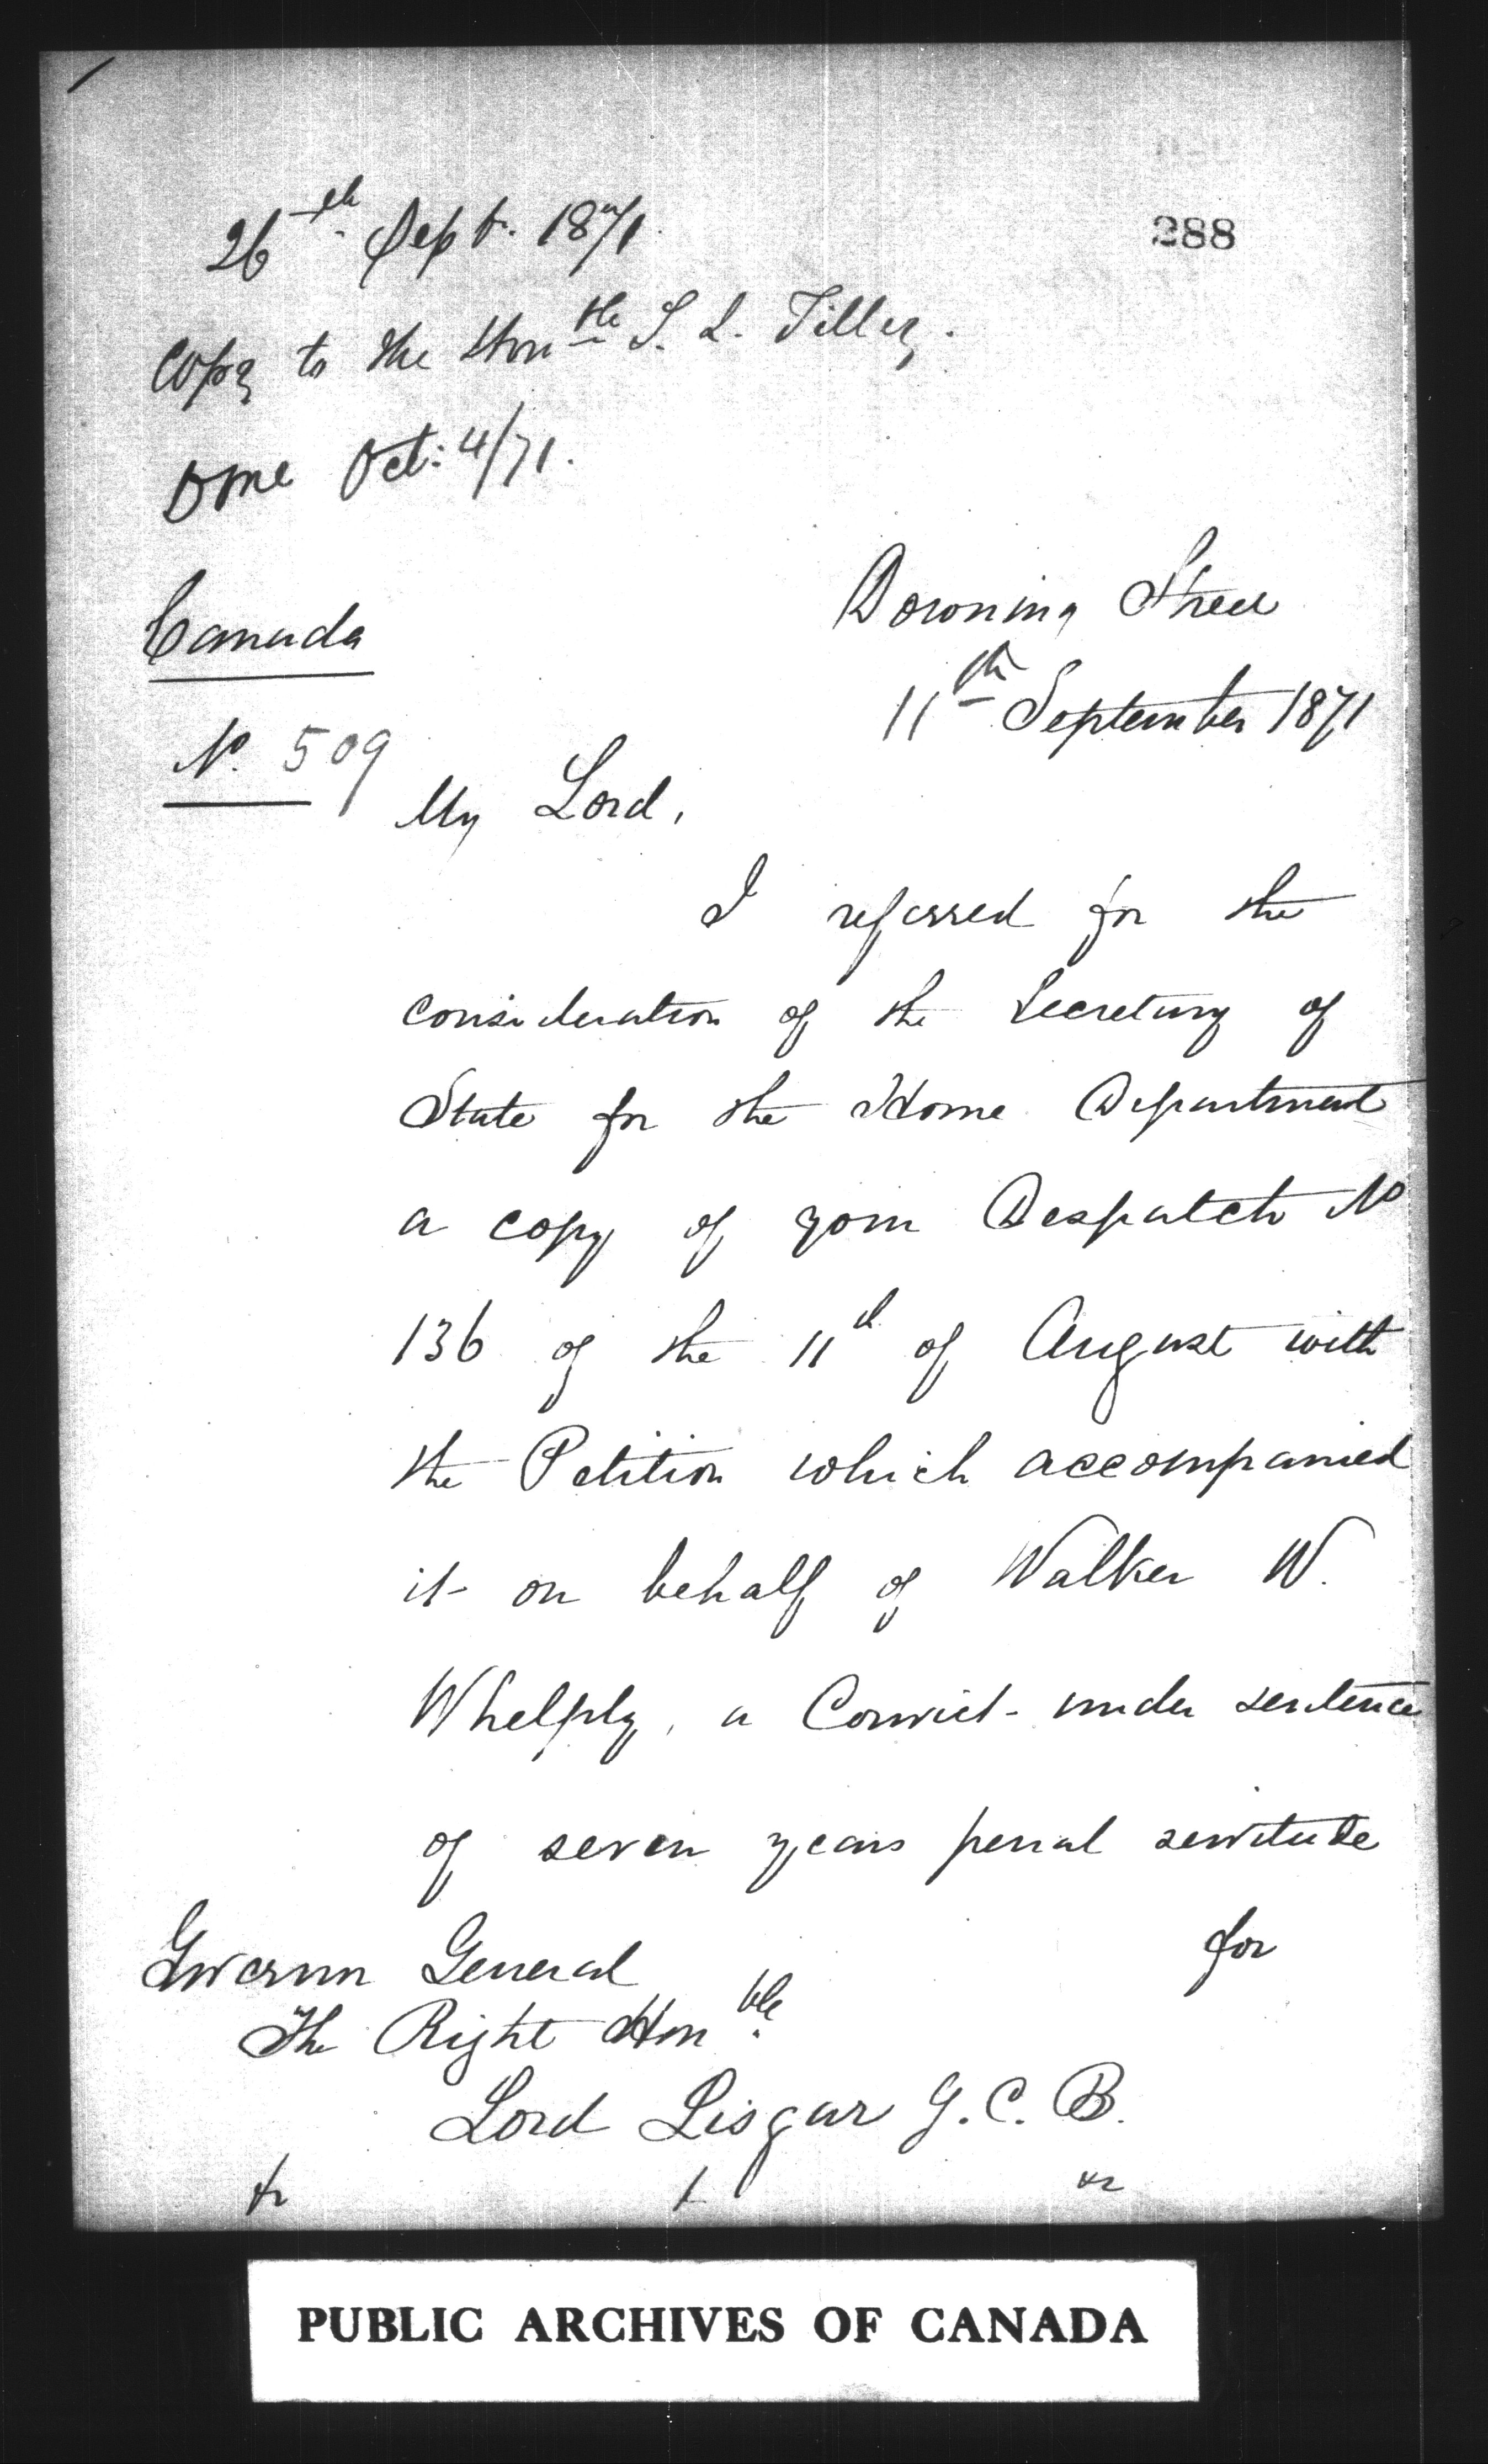 288
26th Sept. 1871.
Copy to the Honble S. L. Tilley.
Done Oct: 4/71.
Canada
Downing Street
11th September 1871
No. 509
My Lord,
I referred for the
consideration of the Secretary of
State for the Home Department
a copy of your Despatch No
136 of the 11th of August with
the Petition which accompanied
it on behalf of Walker W.
Whelply, a Convict under sentence
of seven years penal servitude
for
Governor General
The Right Honble
Lord Lisgar G.C.B.
&c &c &c
PUBLIC ARCHIVES OF CANADA